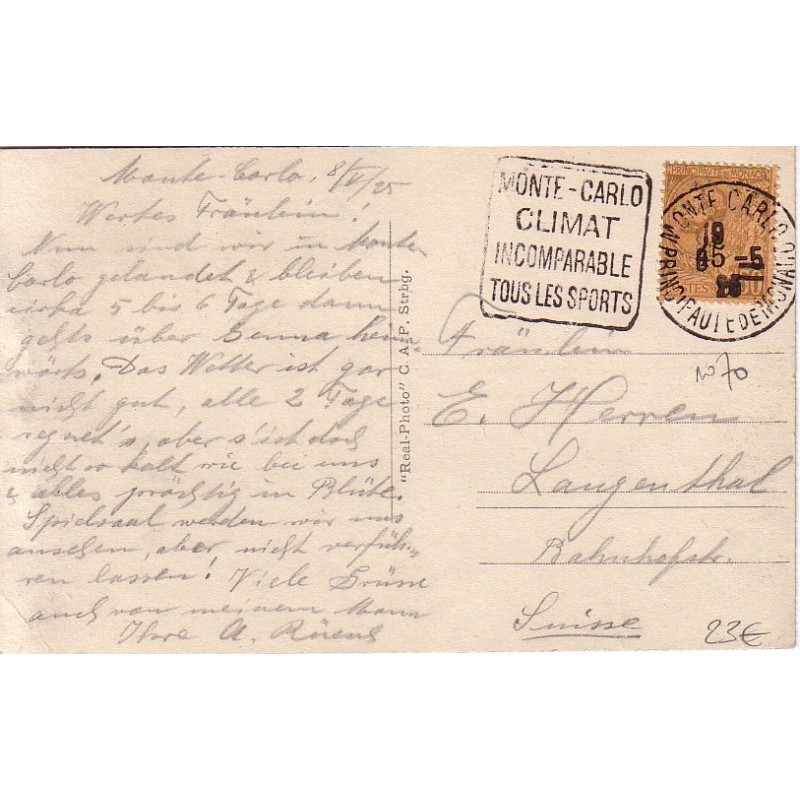 Monte-Carlo, 8/V/25
Wertes Fräulein!
Nun sind wir in Monte
Carlo gelandet & bleiben
cirka 5 bis 6 Tage dann
gehts über Genua heim-
wärts. Das Wetter ist gar
nicht gut, alle 2 Tage
regnet's, aber s'ist doch
nicht so kalt wie bei uns
& alles prächtig in Blüte.
Spielsaal werden wir uns
ansehen, aber nicht verfüh-
ren lassen! Viele Grüsse
auch von meinem Mann
Ihre A.
"Real-Photo" C. A. P. Strbg.
MONTE-CARLO
CLIMAT
INCOMPARABLE
TOUS LES SPORTS
PRINCIPAUTE DE MONACO
MONTE CARLO
PRINCIPAUTE DE MONACO
-5
No 70
Fräulein
E. Herren
Langenthal
Bahnhofstr.
Suisse
23€